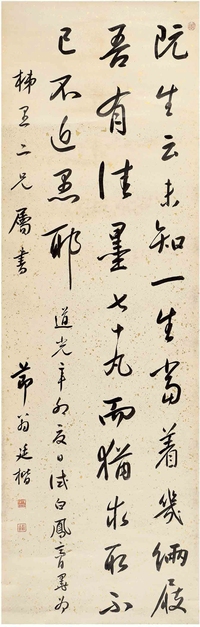 阮生云未知一生當着幾緉屐
吾有佳墨七十丸而猶求取不
已不近愚耶 道光辛卯夏日試白鳳膏墨為
二兄屬書 翁廷楷